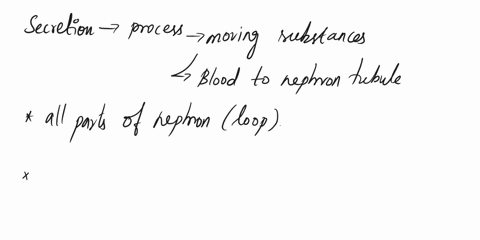 Secretion → process → moving substances
↳ Blood to nephron tubule
* all parts of nephron (loop).
*